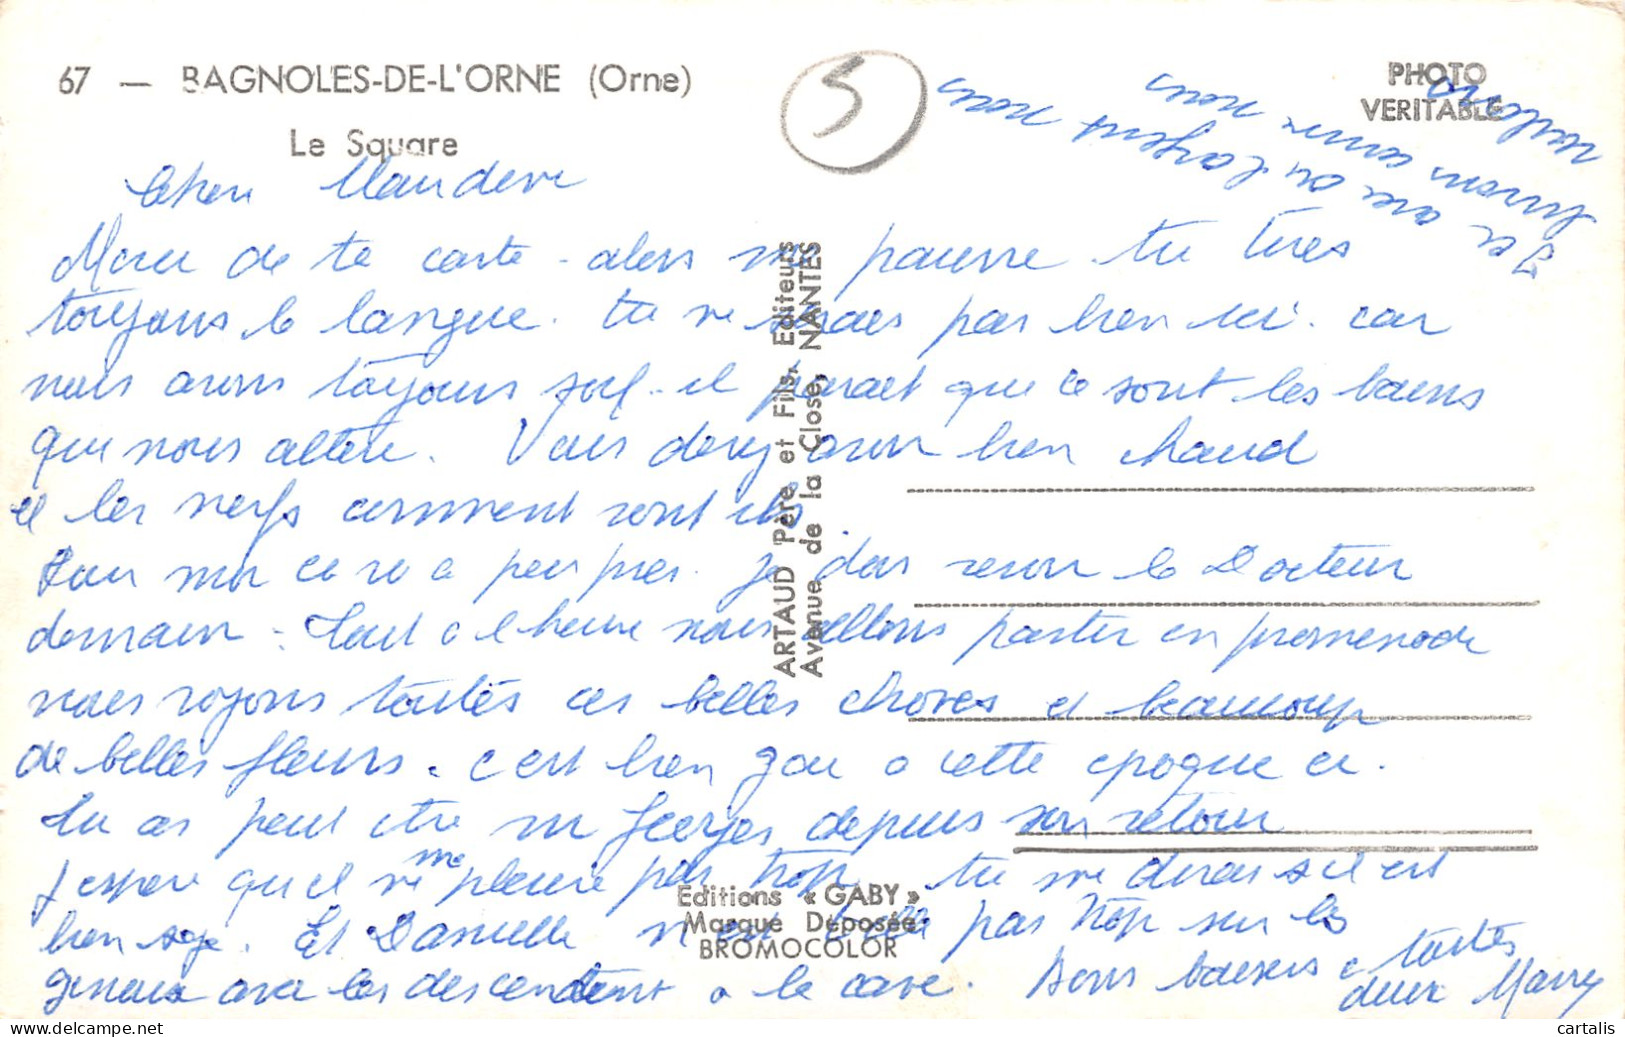 67 — BAGNOLES-DE-L'ORNE (Orne)
Le Square
5
PHOTO
VERITABLE
Merci de ta carte - alors ma pauvre tu tires
toujours la langue. tu ne serais pas bien ici. car
nous avons toujours soif - il parait que ce sont les bains
qui nous altère. Vous devez avoir bien chaud
et les nerfs comment sont ils.
Pour moi ca va a peu pres. Je dois revoir le Docteur
demain - Tout a l heure nous allons partir en promenade
nous voyons toutes ces belles choses et beaucoup
de belles fleurs. c est bien gai a cette epoque ci.
Tu as peut etre vu Georges depuis son retour
j espere qu il ne me pleure pas trop, tu me diras s il est
bien sage. Et Danielle n est elle pas trop sur les
genoux avec les descendent a la cave. Bons baisers a toutes
deux
ARTAUD Père et Fils, Editeurs
Avenue de la Close, NANTES
Editions « GABY »
Marque Déposée
BROMOCOLOR
cartalis